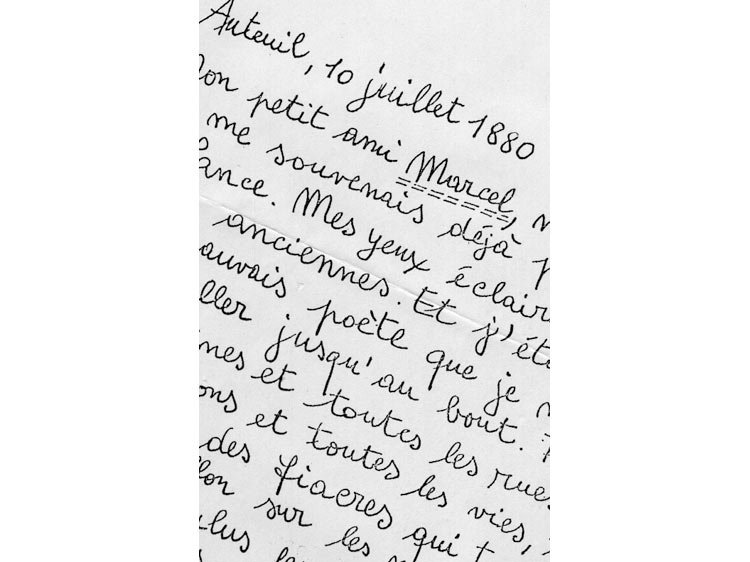 Auteuil, 10 juillet 1880
on petit ami Marcel,
me souvenais déjà
ance. Mes yeux éclair
anciennes. Et j'éta
auvais poète que je
ller jusqu'au bout.
nes et toutes les rues
ons et toutes les vies,
des fiacres qui t
lon sur les
lus